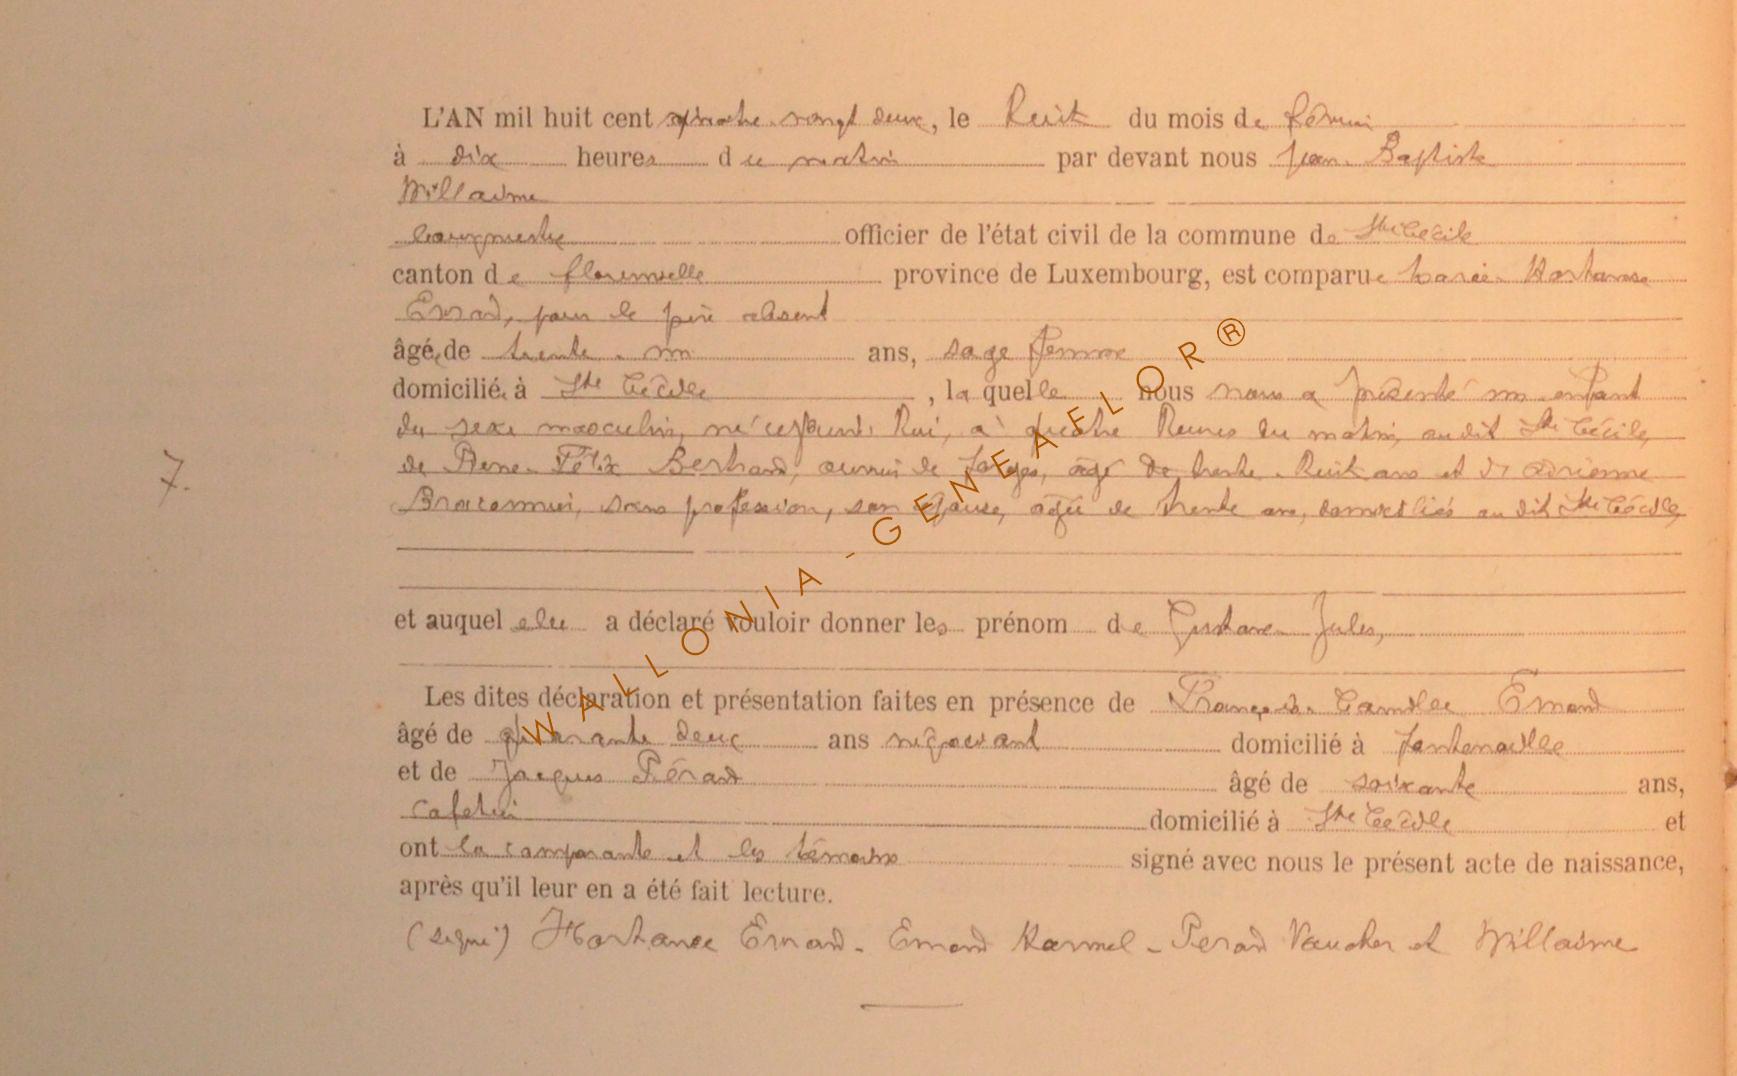 L'AN mil huit cent quatre-vingt deux, le huit du mois de février
à dix heures du matin par devant nous Jean-Baptiste
Willaime
bourgmestre officier de l'état civil de la commune de Ste Cécile
canton de Florenville province de Luxembourg, est comparue Marie-Hortense
Evrard, pour le père absent
âgée de trente-un ans, sage femme
domiciliée à Ste Cécile, laquelle nous nous a présenté un enfant
du sexe masculin, né ce jourd'hui, à quatre heures du matin, audit Ste Cécile,
de Félix Bertrand, ouvrier de forges, âgé de trente-huit ans et d'Adrienne
sans profession, son épouse, âgée de trente ans, domiciliés audit Ste Cécile,
7.
et auquel elle a déclaré vouloir donner les prénom de Gustave-Jules,
Les dites déclaration et présentation faites en présence de François-Camille Emond
âgé de quarante deux ans négociant domicilié à Fontenoille
et de Jacques Pérard âgé de soixante ans,
cafetier domicilié à Ste Cécile et
ont la comparante et les témoins signé avec nous le présent acte de naissance,
après qu'il leur en a été fait lecture.
(signé) Hortance Evrard - Emond - Perard et Willaime
WALLONIA-GENEAELOR®